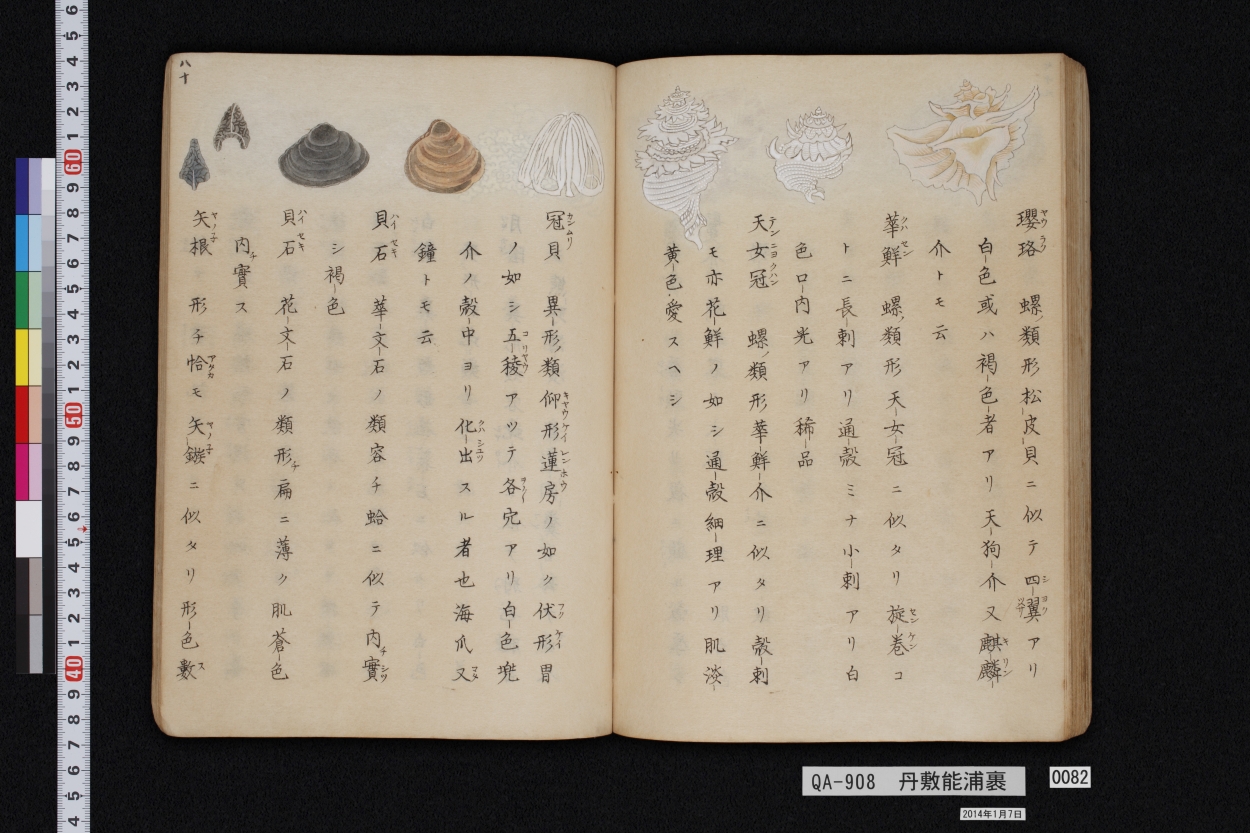 瓔珞 螺ノ類形松皮貝ニ似テ四翼アリ
白色或ハ褐色者アリ天狗介又麒麟
介トモ云
華鮮 螺ノ類形天女冠ニ似タリ旋巻コ
トニ長刺アリ通殻ミナ小刺アリ白
色口内光アリ稀品
天女冠 螺ノ類形華鮮介ニ似タリ殻刺
モ亦花鮮ノ如シ通殻細理アリ肌淡
黄色愛スヘシ
冠貝 異形ノ類仰形蓮房ノ如ク伏形冑
ノ如シ五稜アツテ各穴アリ白色兜
介ノ殻中ヨリ化出スル者也海爪又
鐘トモ云
貝石 華文石ノ類容チ蛤ニ似テ内實
シ褐色
貝石 花文石ノ類形チ扁ニ薄ク肌蒼色
内チ實ス
矢根 形チ恰モ矢鏃ニ似タリ形色數
八十
QA-908 丹敷能浦裹
0082
2014年1月7日